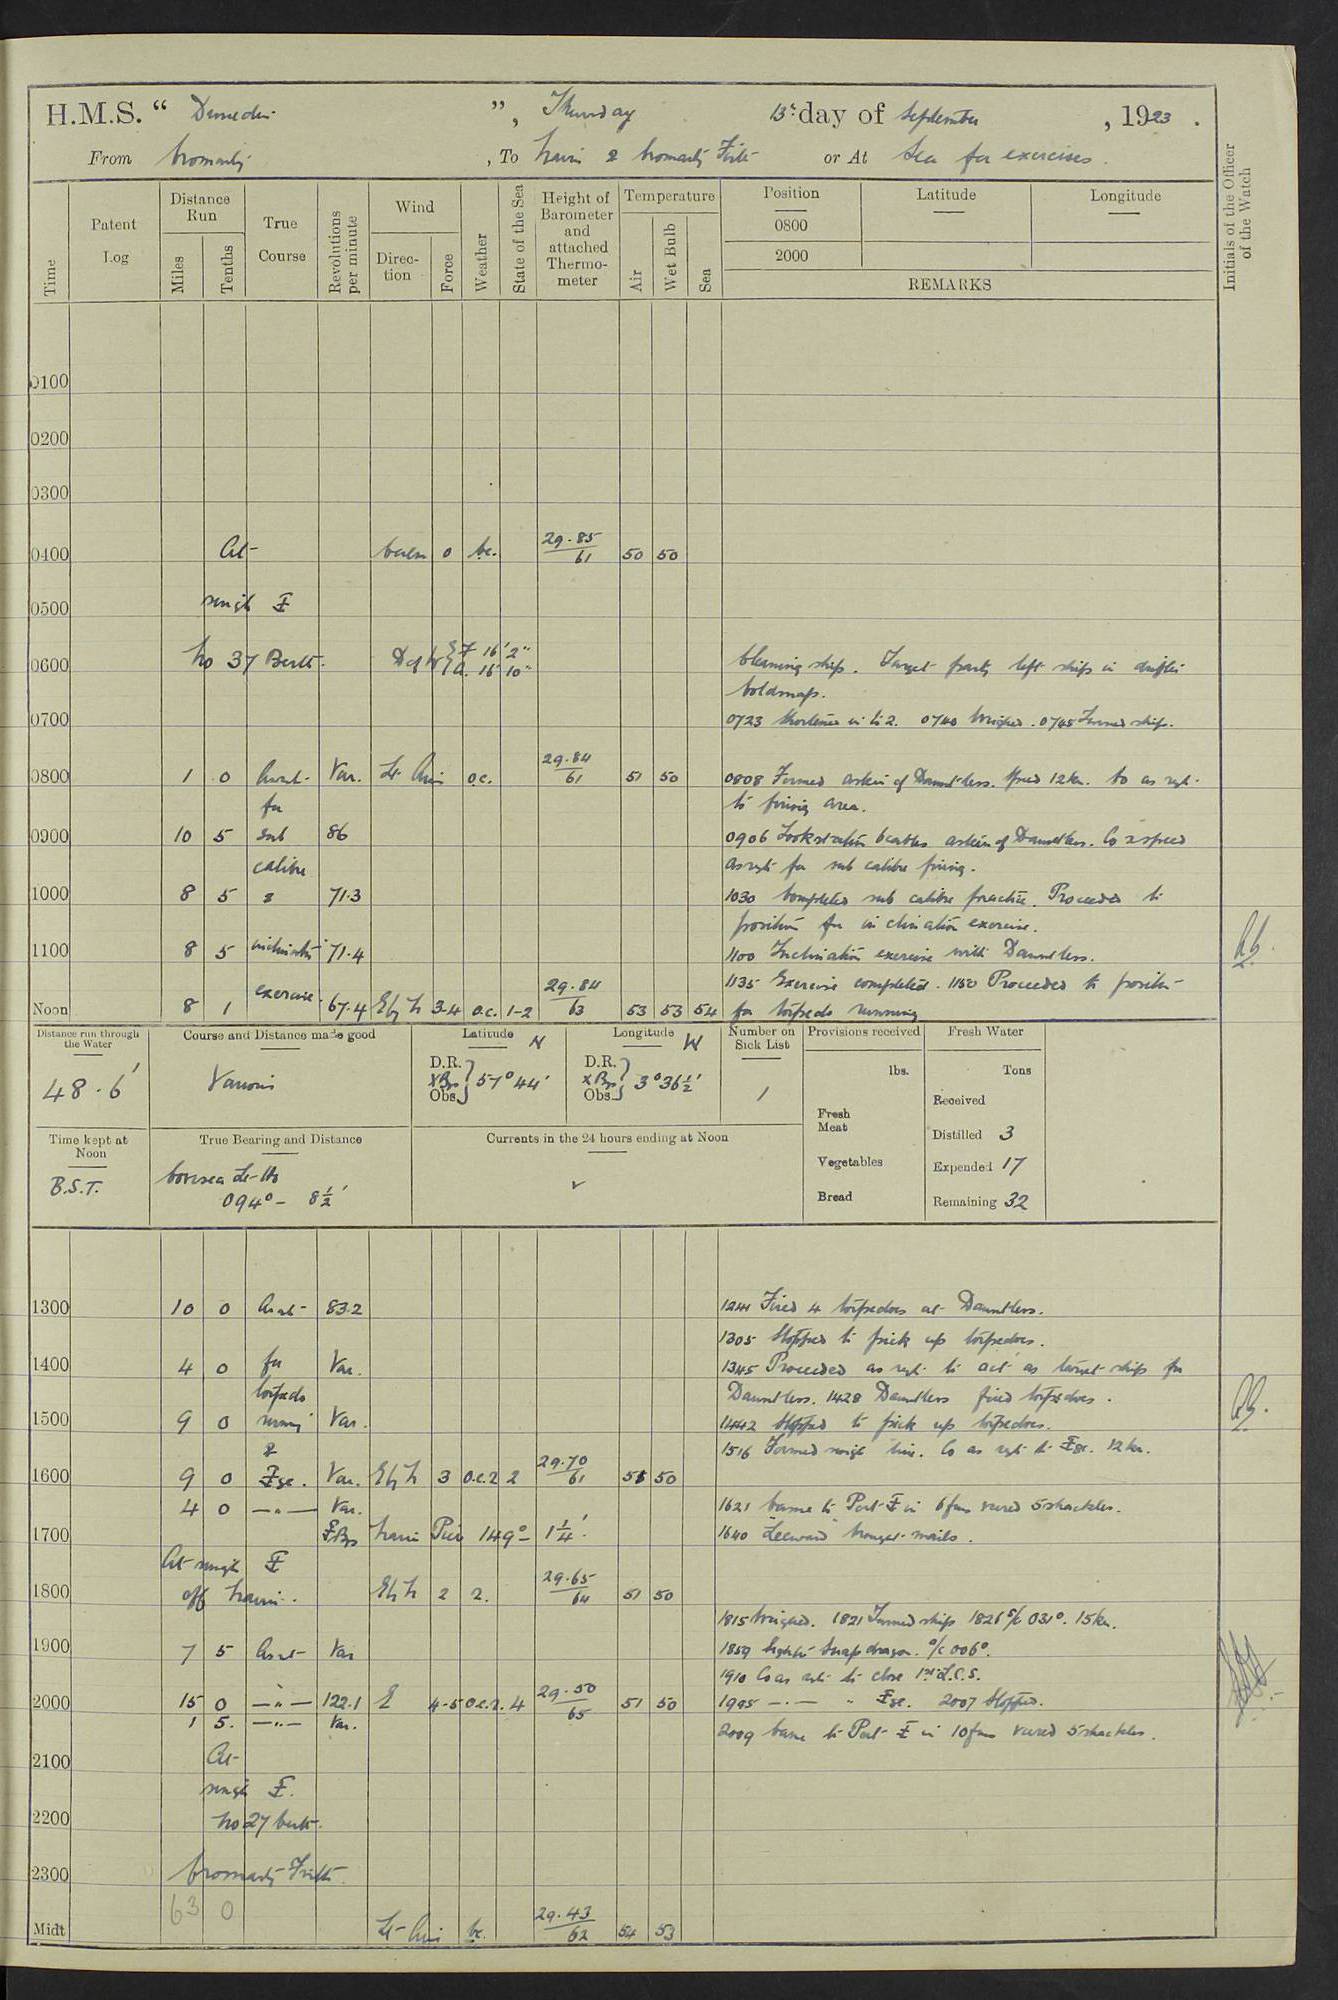 H.M.S. “ Dunedin ”, Thursday 13th day of September, 1923.
From Cromarty, To Nairn & Cromarty Firth or At Sea for exercises.
Time
Patent Log
Distance Run
Miles
Tenths
True Course
Revolutions per minute
Wind
Direction
Force
Weather
State of the Sea
Height of Barometer and attached Thermometer
Temperature
Air
Wet Bulb
Sea
Position
Latitude
Longitude
0800
2000
REMARKS
Initials of the Officer of the Watch
0100
0200
0300
0400 At Calm 0 bc. 29.85/61 50 50
0500 single
0600 No 37 Berth. D of W F. 16' 2" A. 16' 10" Cleaning ship. Target party left ship in drifter
Coldsnap.
0700 0723 Shortened in to 2. 0740 Weighed. 0745 Turned ship.
0800 1 0 As req't Var. Lt Airs o.c. 29.84/61 51 50 0808 Formed astern of Dauntless. Speed 12 kn. Co as reqt.
for to firing area.
0900 10 5 sub 86 0906 Took station 6 cables astern of Dauntless. Co & speed
calibre as reqte for sub calibre firing.
1000 8 5 & 71.3 1030 Completed sub calibre practice. Proceeded to
position for inclination exercise.
1100 8 5 inclination 71.4 1100 Inclination exercise with Dauntless.
exercise. 1135 Exercise completed. 1150 Proceeded to position
Noon 8 1 67.4 E by N 3-4 o.c. 1-2 29.84/63 53 53 54 for torpedo running
Distance run through the Water
48.6'
Course and Distance made good
Various
Latitude N
D.R.
X Bgs
Obs.
57° 44'
Longitude W
D.R.
X Bgs
Obs.
3° 36½'
Number on Sick List
1
Provisions received
lbs.
Fresh Meat
Vegetables
Bread
Fresh Water
Tons
Received
Distilled 3
Expended 17
Remaining 32
Time kept at Noon
B.S.T.
True Bearing and Distance
Covesea Lt-Ho
094° - 8½'
Currents in the 24 hours ending at Noon
1300 10 0 As req't 83.2 1241 Fired 4 torpedoes at Dauntless.
1305 Stopped to pick up torpedoes.
1400 4 0 for Var. 1345 Proceeded as reqt. to act as target ship for
torpedo Dauntless. 1428 Dauntless fired torpedoes.
1500 9 0 runng Var. 1442 Stopped to pick up torpedoes.
& 1516 Formed single line. Co as reqt to ge. 12 kn.
1600 9 0 ge. Var. E by N 3 o.c.z 2 29.70/61 51 50
4 0 —"— Var. 1621 Came to Port in 6 fms veered 5 shackles.
1700 Bgs Nairn Pier 149° - 1¼'. 1640 Leeward brought mails.
At single
1800 off Nairn. E by N 2 2. 29.65/64 51 50
1815 Weighed. 1821 Turned ship 1826 S/c 031°. 15 kn.
1900 7 5 As req't Var 1859 Sighted Snapdragon. A/c 006°.
1910 Co as reqt. to close 1st L.C.S.
2000 15 0 —"— 122.1 E 4-5 o.c.z. 4 29.50/65 51 50 1995 —"— " ge. 2007 Stopped.
1 5. —"— Var. 2009 Came to Port in 10 fms veered 5 shackles.
2100 At
single
2200 No 27 berth.
2300 Cromarty Firth.
63 0
Midt Lt Airs bc. 29.43/62 54 53